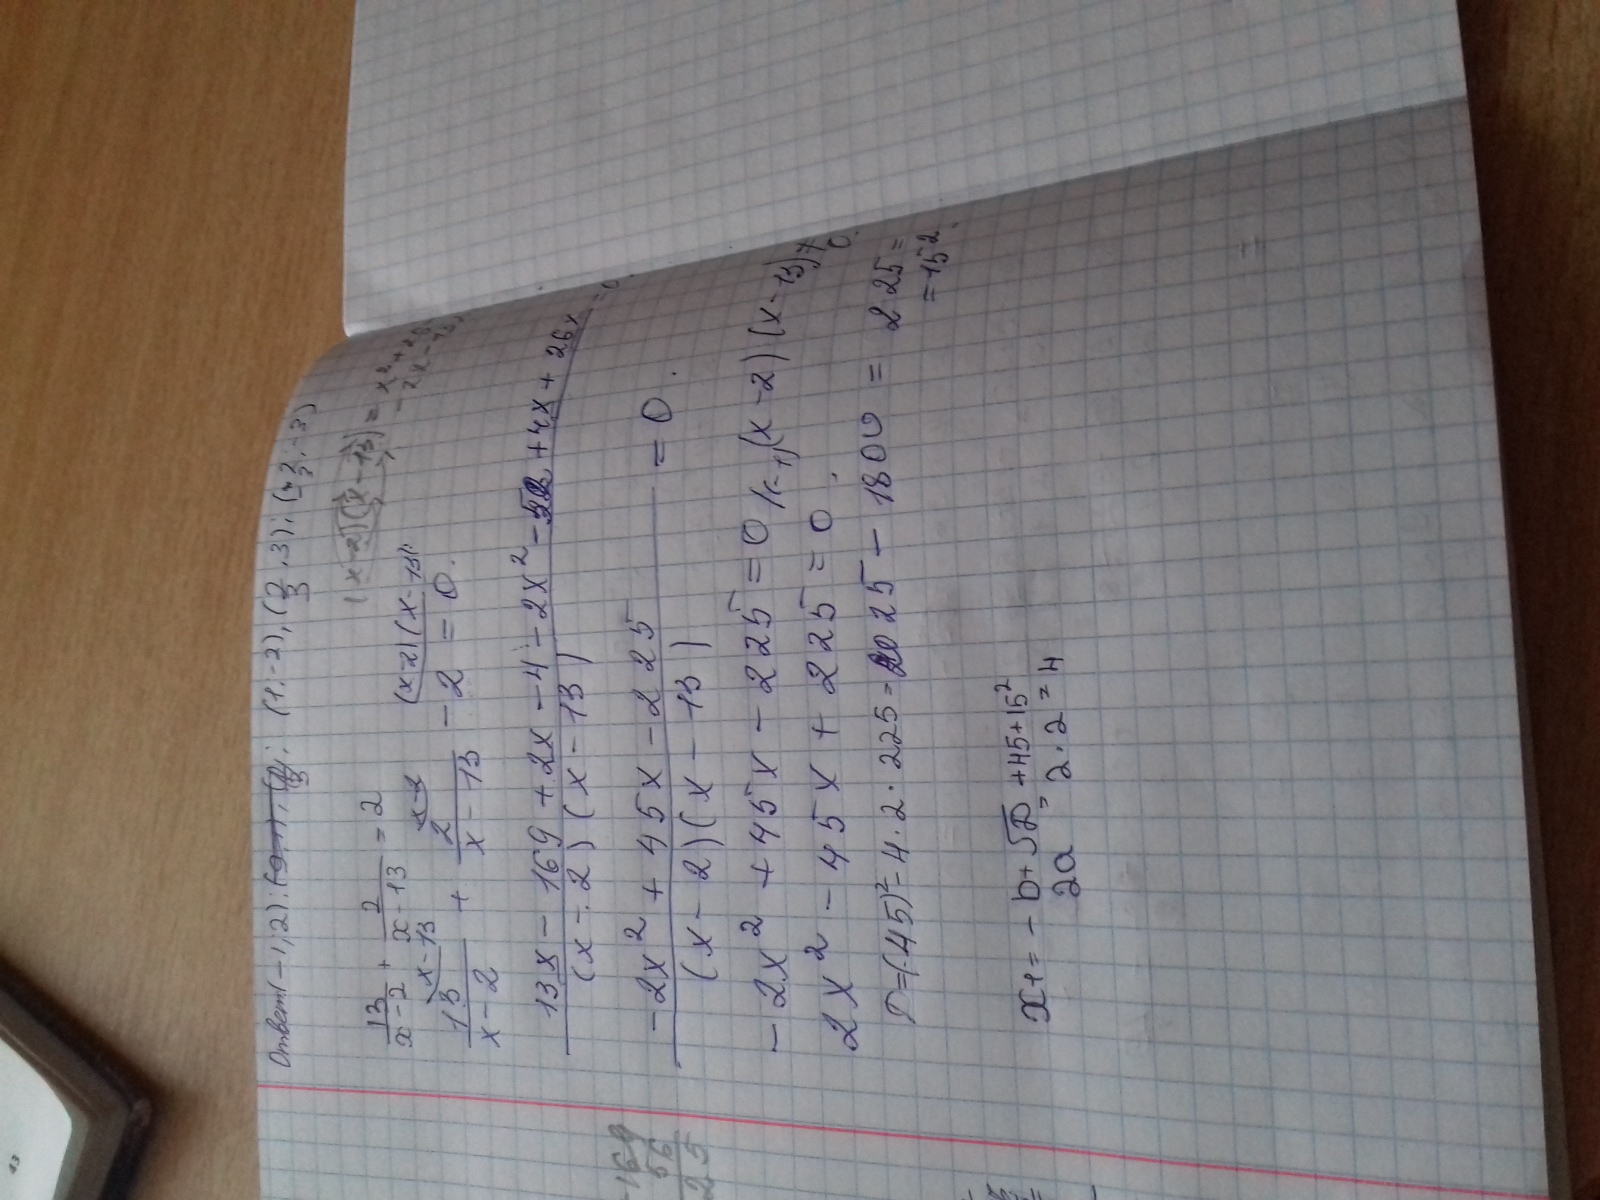 Ответ(-1,2); (1,-2), (2/3, 3); (-2/3, -3)
13/(x-2) + 2/(x-13) = 2
(x-2)(x-13) = x²
13/(x-2) + 2/(x-13) - 2 = 0.
x-13
(x-2)(x-13)
(13x - 169 + 2x - 4 - 2x² - 52 + 4x + 26x)/((x-2)(x-13)) = 0
(-2x² + 45x - 225)/((x-2)(x-13)) = 0.
-2x² + 45x - 225 = 0 /(-1) (x-2)(x-13) ≠ 0.
2x² - 45x + 225 = 0.
D=(-45)² - 4·2·225 = 2025 - 1800 = 225 =
= 15².
x₁ = (-b+√D)/2a = (+45+15²)/(2·2) = 4
-169
56
25